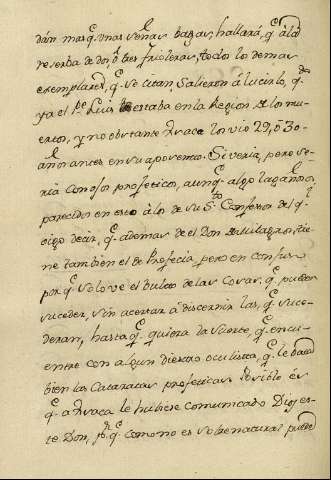 dán mas q.e unas señas bagas, hallará, q.e á la
reserba de dos, ó tres friolèras, todos los demas
exemplares, q.e se citan, salieron á lucirlo, q.do
ya el P.e Luis estaba en la Region de los mu-
ertos, y no obstante Aruaca los vio 29, ó 30
años antes en su aposento. Si veria, pero se-
ria con ojos profeticos, aunq.e algo lagañosos,
parecidos en esto à los de su S.to Confesor del q.e
oigo decir, q.e ademas de el Don de Milagros, tie-
ne tambien el de Profecia, pero en confuso
por q.e solo ve el bulto de las Cosas, q.e pueden
suceder, sin acertar à discernir las, q.e suce-
deran, hasta q.e quiera la suerte, q.e encu-
entre con algun diestro oculista, q.e le bata
bien las Cataratas profeticas. Posible és
q.e a Aruaca le hubiese comunicado Dios es-
te Don, p.r q.e como no es sobrenatural puede